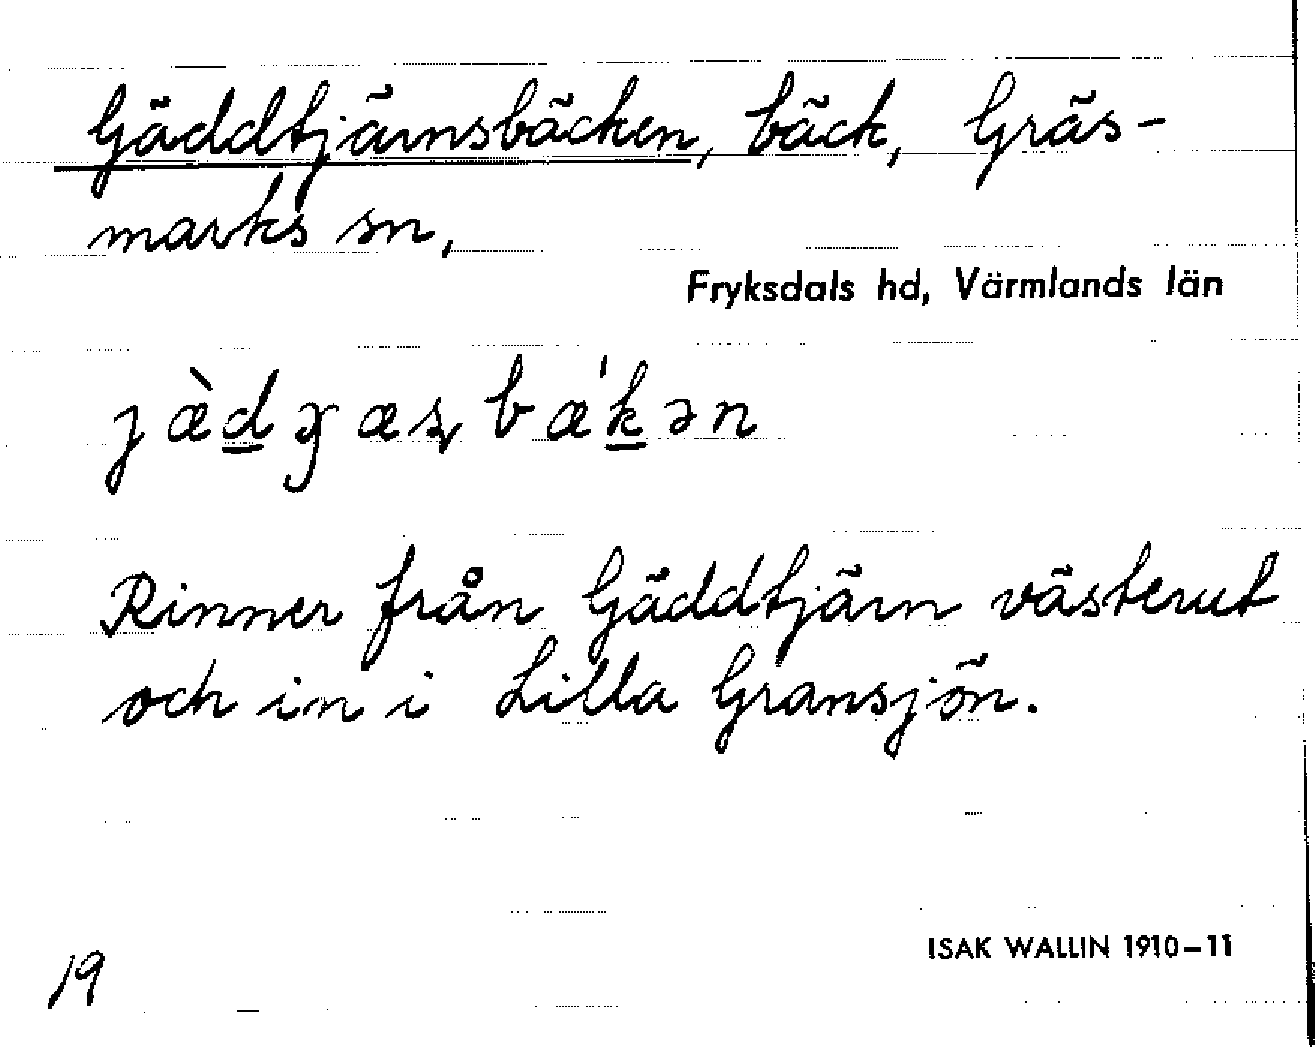 Gäddtjärnsbäcken, bäck, Gräs-
marks sn,
Fryksdals hd, Värmlands län
Rinner från Gäddtjärn västerut
och in i Lilla Gransjön.
ISAK WALLIN 1910-11
19